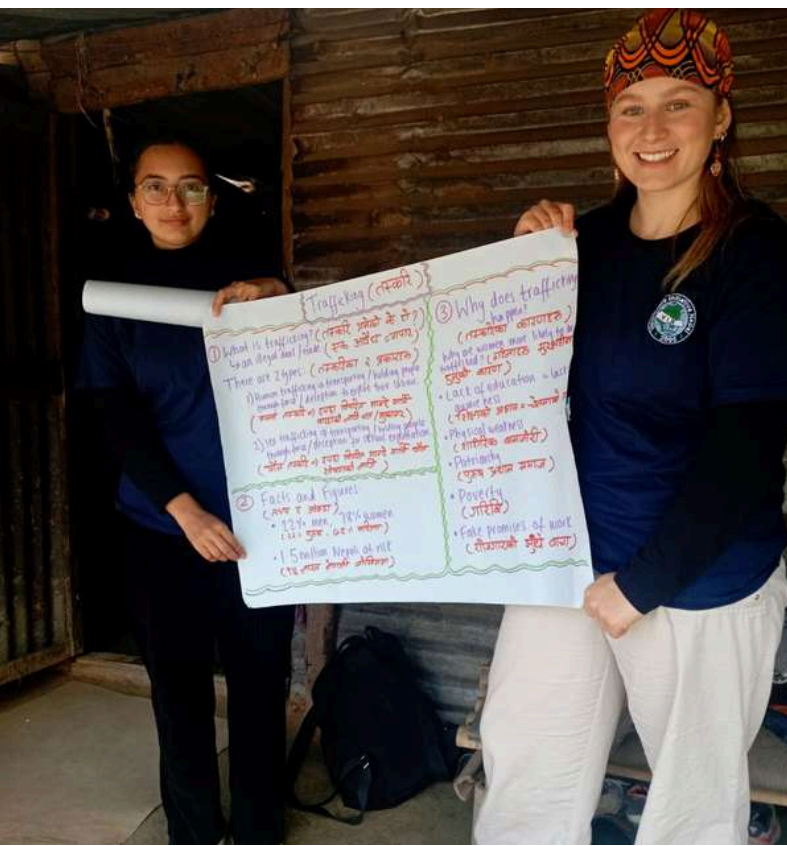 Trafficking (तस्करी)
① What is trafficking? (तस्करि भनेको के हो?)
↳ an illegal deal / trade (एक अवैध व्यापार)
There are 2 types: (तस्करिका २ प्रकारहरु)
1) Human trafficking is transporting / holding people
through force / deception to exploit their labour.
2) sex trafficking is transporting / holding people
through force / deception for sexual exploitation
② Facts and Figures
(तथ्य र आंकडा)
• 22% men, 78% women
(२२% पुरुष, ७८% महिला)
• 1.5 million Nepali at risk
(१५ लाख नेपाली जोखिममा)
③ Why does trafficking
happen?
(तस्करिका कारणहरु)
Why are women more likely to be
trafficked?
• Lack of education = lack
awareness
• Physical weakness
(शारीरिक कमजोरी)
• Patriarchy
(पुरुष प्रधान समाज)
• Poverty
(गरिबि)
• Fake promises of work
(रोजगारको झुठो वाचा)